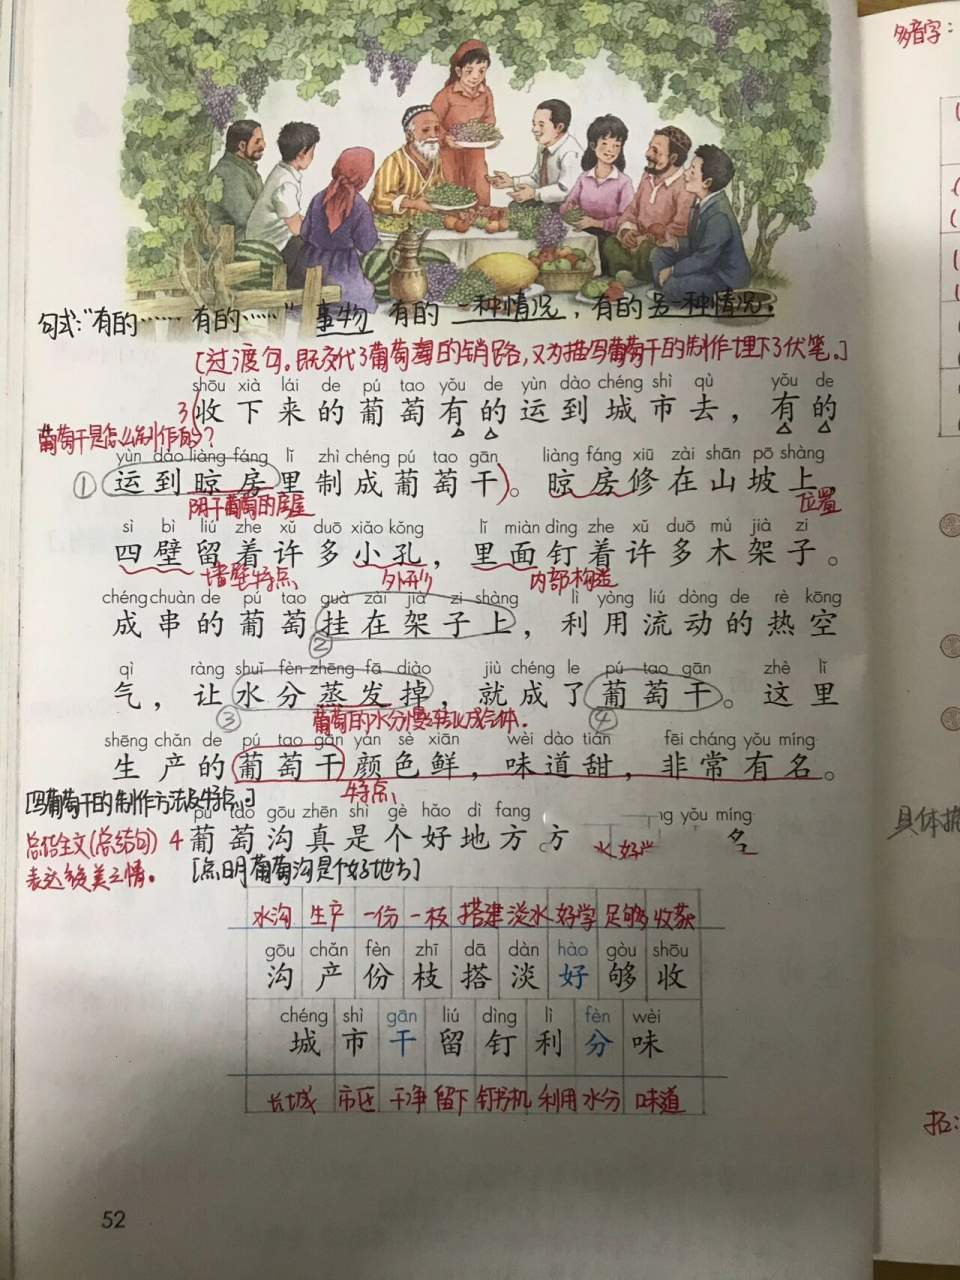 多音字：
句式："有的…… 有的……" 事物 有的 一种情况，有的另一种情况。
[过渡句。既交代了葡萄的销路，又为描写葡萄干的制作埋下了伏笔。]
shōu xià lái de pú tao yǒu de yùn dào chéng shì qù yǒu de
3 收下来的葡萄有的运到城市去，有的
葡萄干是怎么制作的？
yùn dào liàng fáng lǐ zhì chéng pú tao gān liàng fáng xiū zài shān pō shàng
① 运到晾房里制成葡萄干。晾房修在山坡上，
阴干葡萄的房屋 位置
sì bì liú zhe xǔ duō xiǎo kǒng lǐ miàn dìng zhe xǔ duō mù jià zi
四壁留着许多小孔，里面钉着许多木架子。
墙壁特点 外形 内部构造
chéng chuàn de pú tao guà zài jià zi shàng lì yòng liú dòng de rè kōng
成串的葡萄挂在架子上，利用流动的热空
②
qì ràng shuǐ fèn zhēng fā diào jiù chéng le pú tao gān zhè lǐ
气，让水分蒸发掉，就成了葡萄干。这里
③ 葡萄的水分慢慢转化成气体. ④
shēng chǎn de pú tao gān yán sè xiān wèi dào tián fēi cháng yǒu míng
生产的葡萄干颜色鲜，味道甜，非常有名。
[写葡萄干的制作方法及特点。] 特点
pú tao gōu zhēn shì gè hǎo dì fang ng yǒu míng
总结全文(总结句) 4 葡萄沟真是个好地方 方 名
表达赞美之情。 [点明葡萄沟是个好地方]
水沟 生产 一份 一枝 搭建 淡水 好学 足够 收获
gōu chǎn fèn zhī dā dàn hào gòu shōu
沟 产 份 枝 搭 淡 好 够 收
chéng shì gān liú dìng lì fèn wèi
城 市 干 留 钉 利 分 味
长城 市区 干净 留下 钉书机 利用 水分 味道
52
具体描
拓：